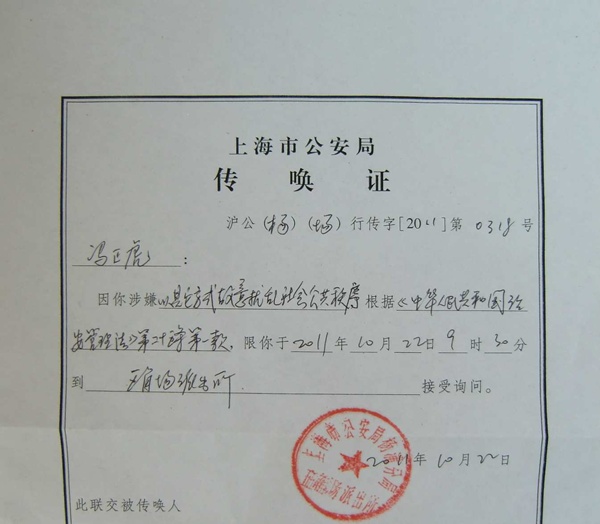 上海市公安局
传唤证
沪公(杨)(场)行传字[2011]第0318号
冯正虎:
因你涉嫌以其它方式故意扰乱社会公共秩序根据《中华人民共和国治
安管理法》第二十五条第一款,限你于2011年10月22日9时30分
到五角场派出所接受询问。
上海市公安局杨浦分局
五角场派出所
2011年10月22日
此联交被传唤人